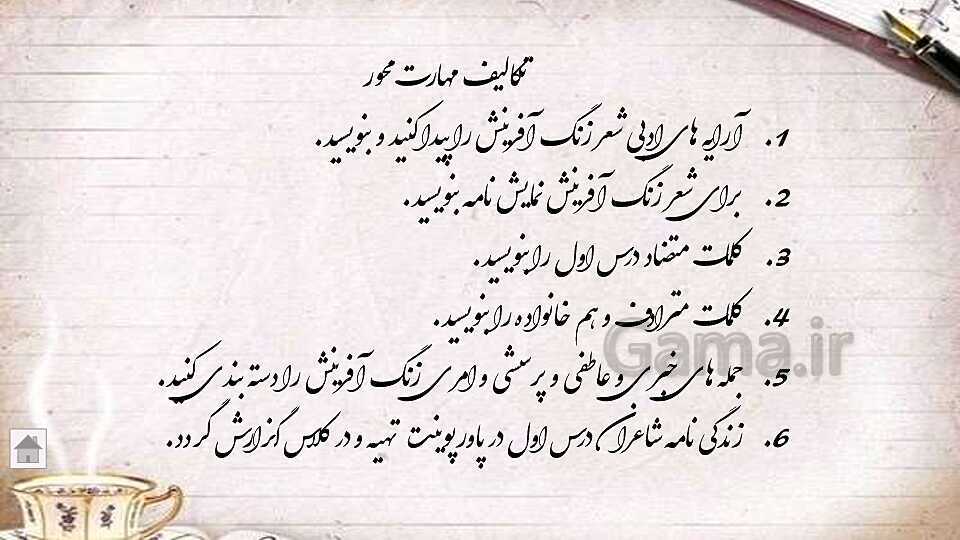 تکالیف مهارت محور
1. آرایه های ادبی شعر زنگ آفرینش را پیدا کنید و بنویسید.
2. برای شعر زنگ آفرینش نمایش نامه بنویسید.
3. کلمات متضاد درس اول را بنویسید.
4. کلمات مترادف و هم خانواده را بنویسید.
Gama.ir
5. جمله های خبری و عاطفی و پرسشی و امری زنگ آفرینش را دسته بندی کنید.
6. زندگی نامه شاعران درس اول در پاورپوینت تهیه و در کلاس گزارش گردد.